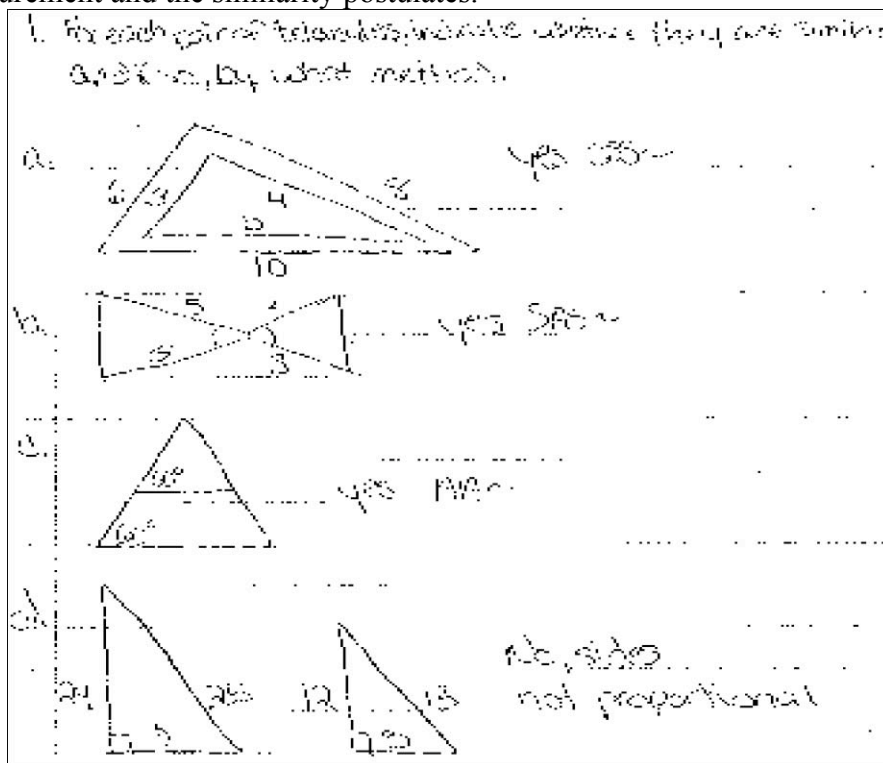 urement and the similarity postulates.
1. For each pair of triangles, indicate whether they are similar
and if so, by what method.
a.
6
3
4
8
10
yes SSS~
b.
5
3
yes SAS~
c.
60°
yes AA~
d.
24
25
12
13
No, sides
not proportional